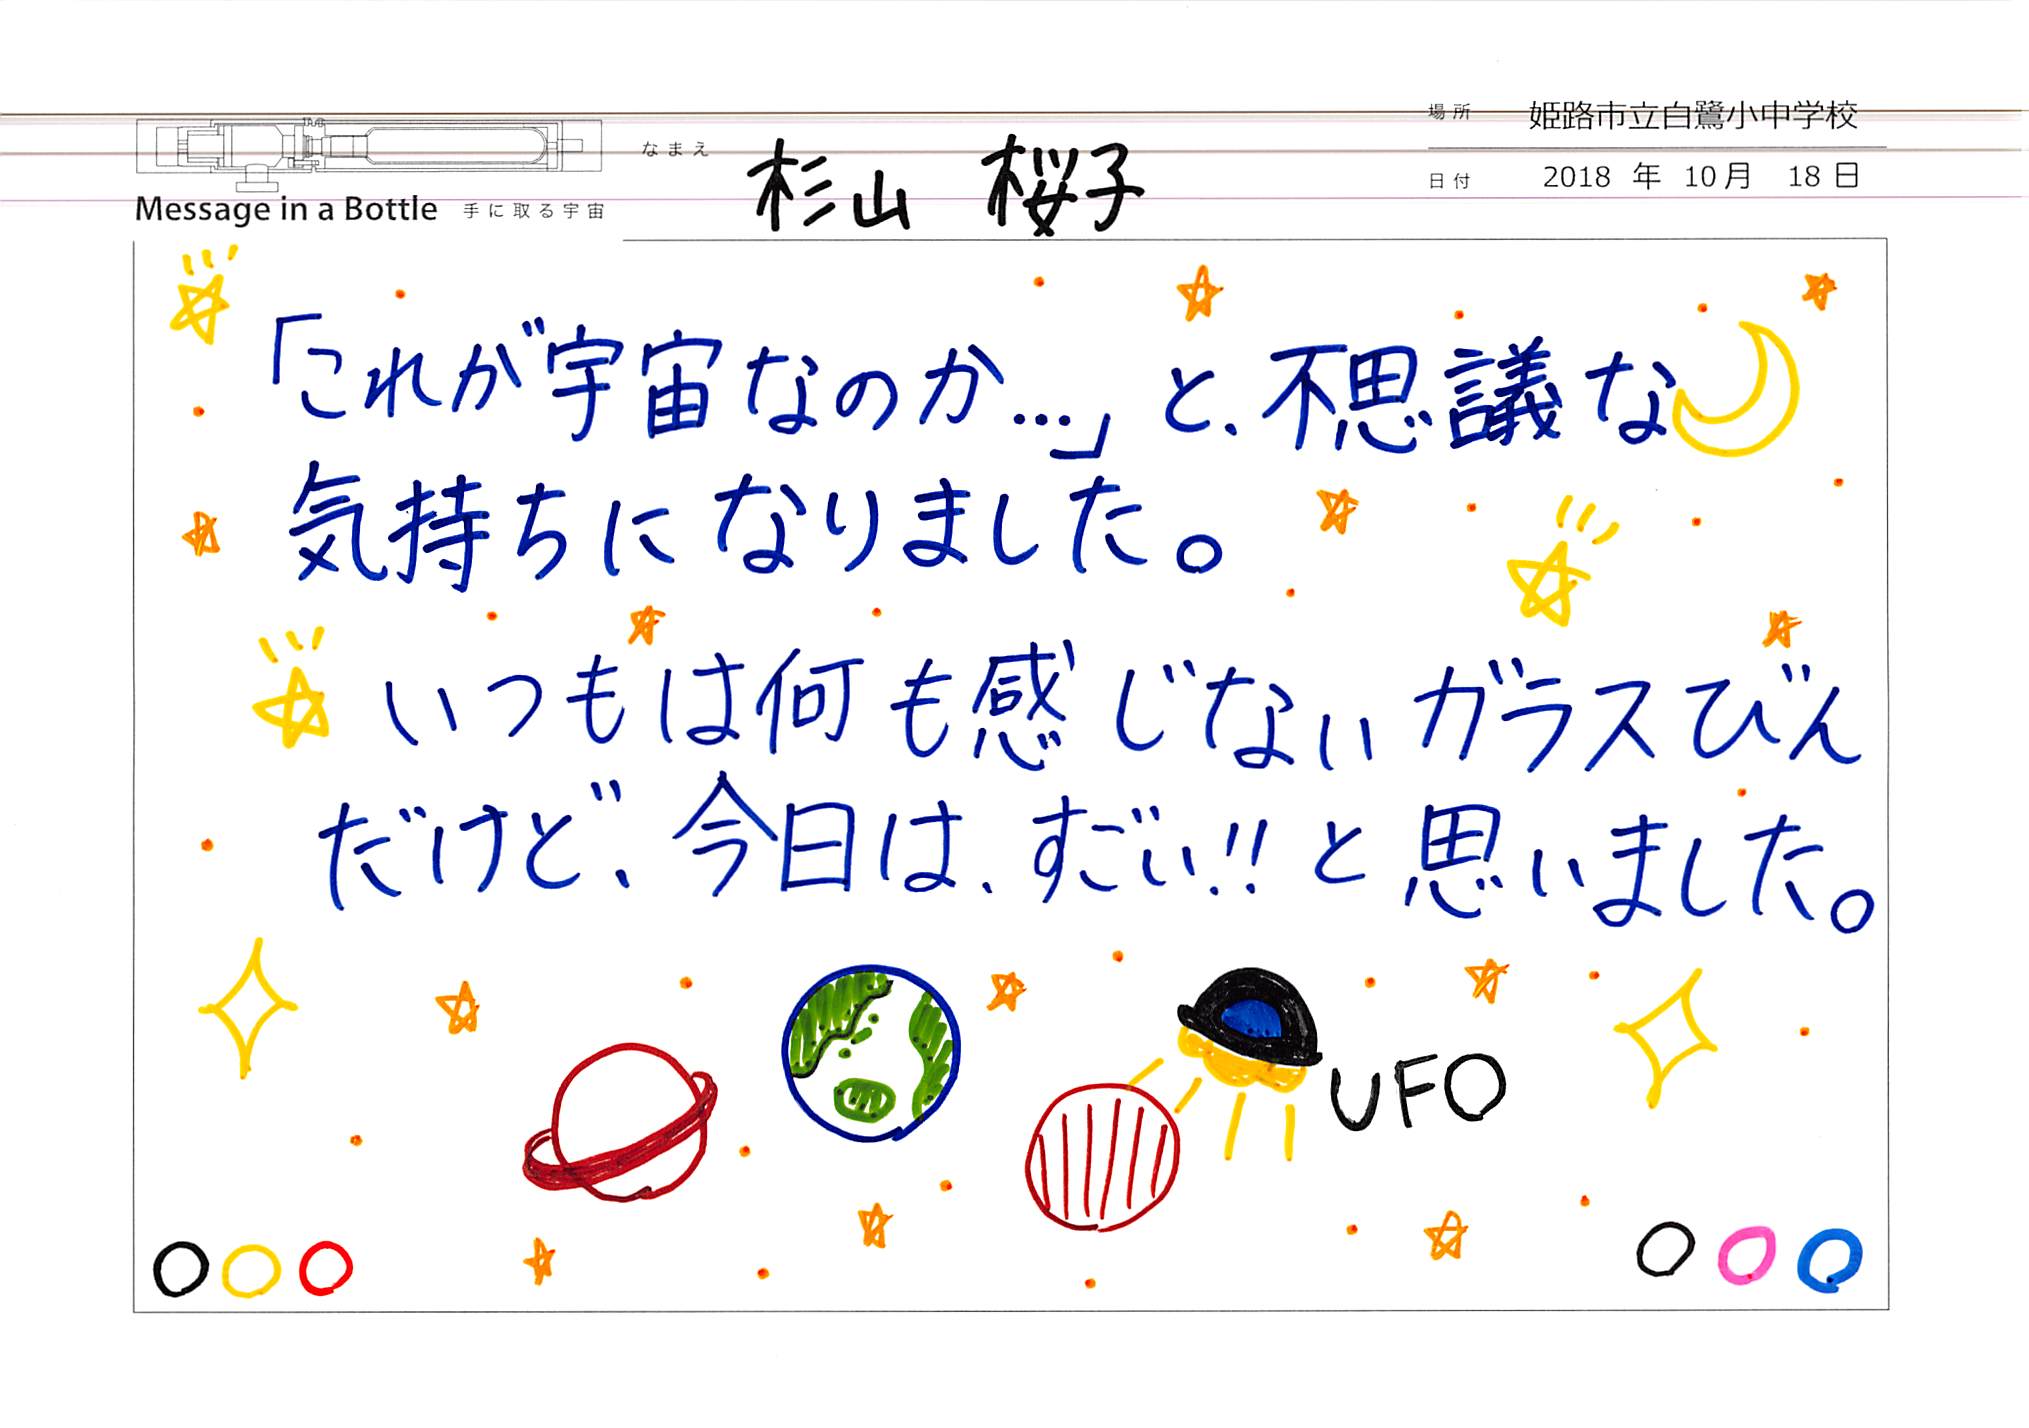 場所 姫路市立白鷺小中学校
なまえ 杉山 桜子
日付 2018 年 10 月 18 日
Message in a Bottle 手に取る宇宙
「これが宇宙なのか…」と、不思議な
気持ちになりました。
いつもは何も感じないガラスびん
だけど、今日は、すごい!!と思いました。
UFO